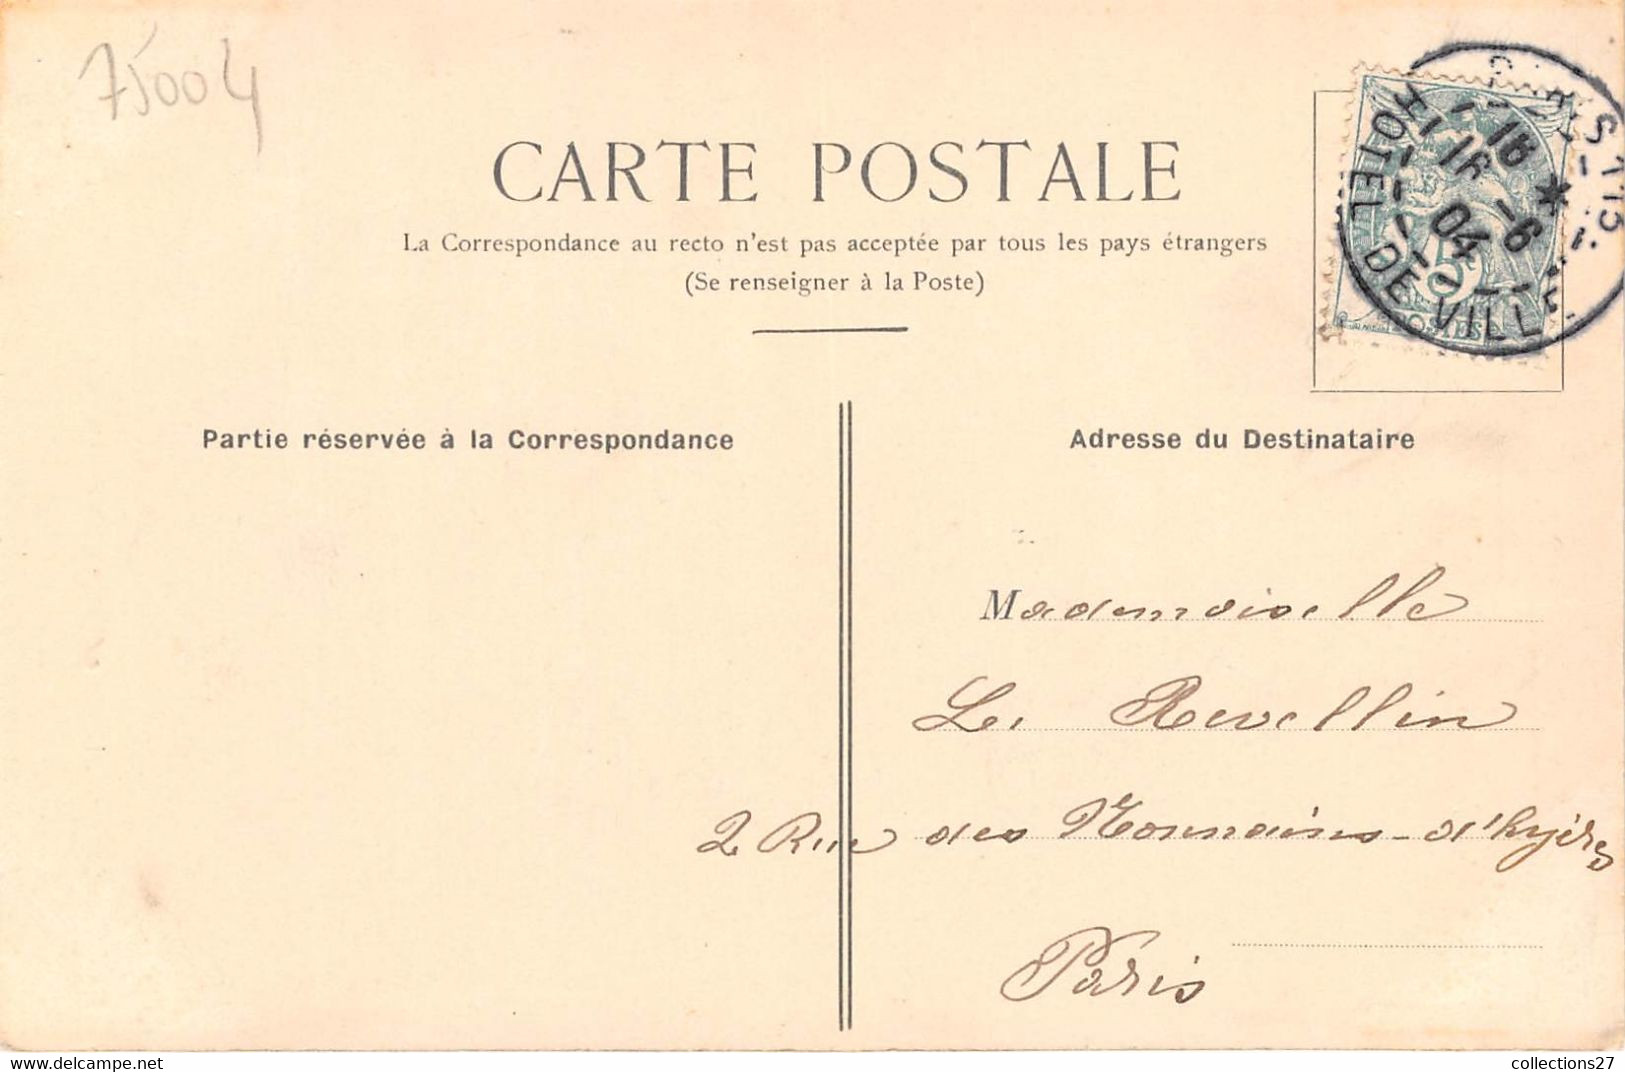 75004
CARTE POSTALE
La Correspondance au recto n'est pas acceptée par tous les pays étrangers
(Se renseigner à la Poste)
HOTEL DE VILLE
16 -6
04
5
POSTES
Partie réservée à la Correspondance
Adresse du Destinataire
Mademoiselle
Le Revellin
2 Rue des Nonnains-d'hyères
Paris
https://www.delcampe.net
collections27